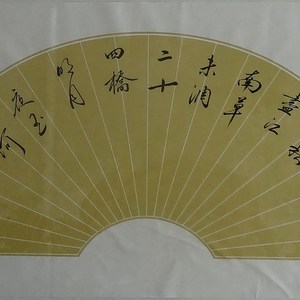 盡江
南草
未凋
二十
四橋
明月
夜玉
何